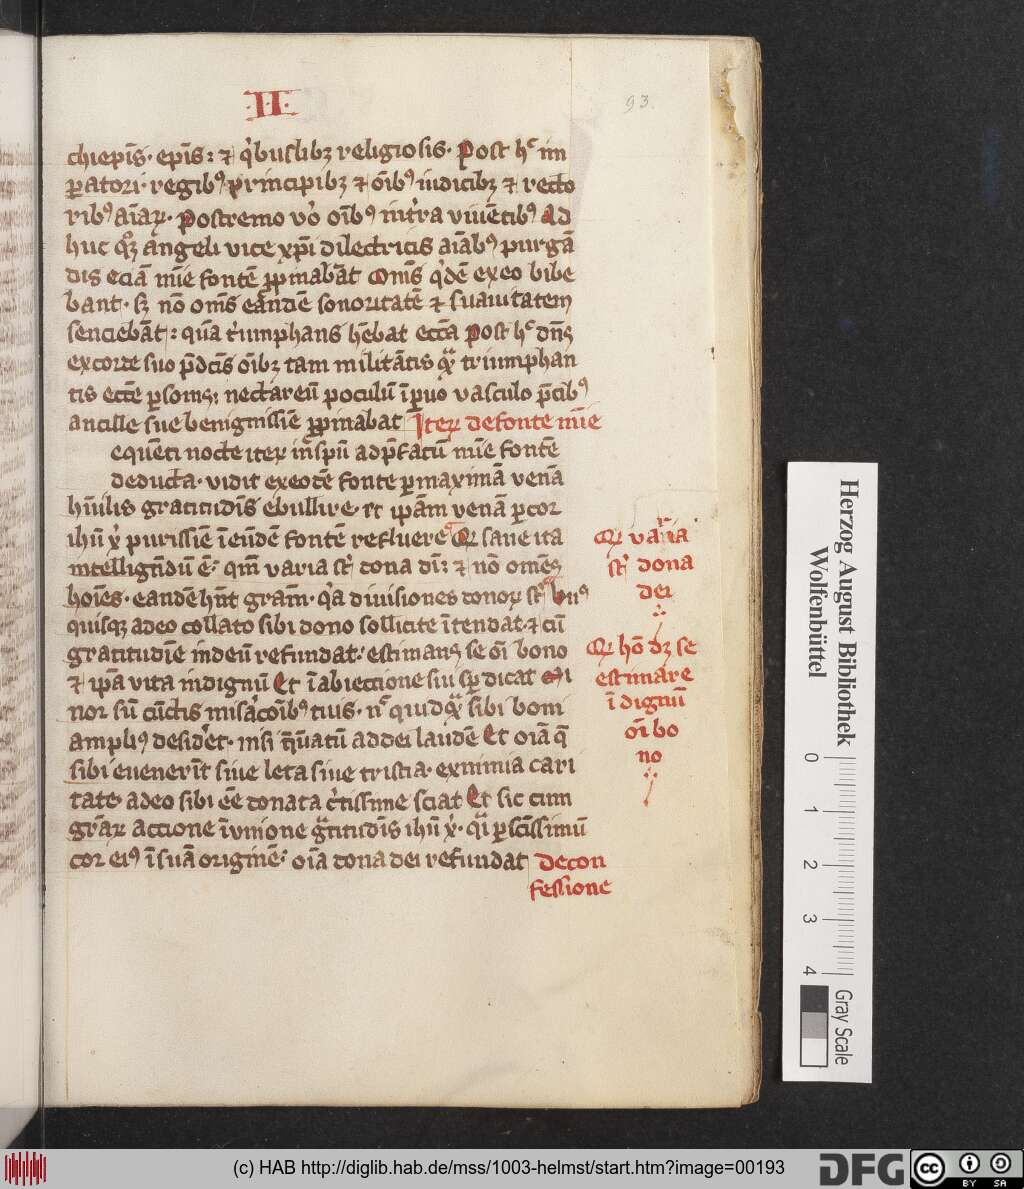 ·II·
93.
chiepīs · epīs : ⁊ qͥbuslibꝫ religiosis · Post hͨ im
ꝑatori · regibꝰ principibꝫ ⁊ oībꝰ iudicibꝫ ⁊ recto
ribꝰ aīaꝝ · postremo vͦo oībꝰ intͥra viuētibꝰ Ad
huc qͦꝫ angeli vice xp̄i dilectricis aīabꝰ purgā
dis eciā mīe fontē ꝓpinabāt Om̄s qͥdē exeo bibe
bant · sꝫ nō om̄s eandē sonoritatē ⁊ suauitatem
senciebāt : quā tͥumphans hēbat eccͣa post hͨ dn̄s
excorde suo p̄dc̄is oībꝫ tam militātis qͣꝫ triumphan
tis ecc̄e ꝑsonis ; nectareū poculū ī paruo vasculo p̄cibꝰ
ancille sue benignissīe ꝓpinabat Iteꝝ defonte mīe
equēti nocte iteꝝ in sp̄u ad p̄fatū mīe fontē
deducta · vidit exeodē fonte ꝑ maximā venā
hūilis gratitudīs ebullire · et ip̄am venā ꝑ cor
ihū xͥ purissīe ī eūdē fontē refluere Qꝫ sane ita
intellign̄dū ē · qm̄ varia st̄ dona dei : ⁊ nō omēs
hoīes · eandē hn̄t grām · qͥa diuisiones donoꝝ st̄ vnꝰ
quisqꝫ adeo collato sibi dono sollicite ītendat · ⁊ cū
gratitudīe in deū refundat : estimans se oī bono
⁊ ip̄a vita indignū Et ī abieccione sui sp̄ dicat Mi
nor sū cūctis misacōibꝰ tuis · nͨ quidqͣꝫ sibi boni
ampliꝰ desidͥet · nisi qͣtū ad dei laudē Et oīa q̄
sibi euenerīt siue leta siue tristia · eximia cari
tate adeo sibi ēe donata cͥtissime sciat Et sic cum
grāꝝ accione ī vnione gͣtitudīs ihū xͥ · qͣi ꝑ sc̄issimū
cor eiꝰ ī suā originē · oīa dona dei refundat de con
fessione
Qꝫ varia
st̄ dona
dei
Qꝫ hō dꝫ se
estimare
ī dignū
oī bo
no
Herzog August Bibliothek
Wolfenbüttel
0 1 2 3 4
Gray Scale
(c) HAB http://diglib.hab.de/mss/1003-helmst/start.htm?image=00193
DFG
cc BY SA